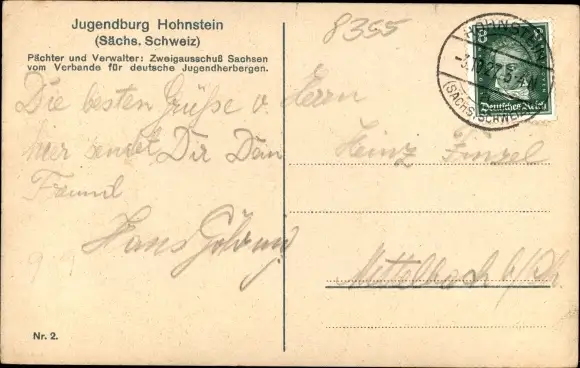 Jugendburg Hohnstein
(Sächs. Schweiz)
Pächter und Verwalter: Zweigausschuß Sachsen
vom Verbande für deutsche Jugendherbergen.
8355
HOHNSTEIN
(SÄCHS. SCHWEIZ)
8 8
Deutsches Reich
Die besten Grüße v.
hier sendet Dir Dein
Freund
Hans
Herrn
Heinz
Mittelbach
Nr. 2.